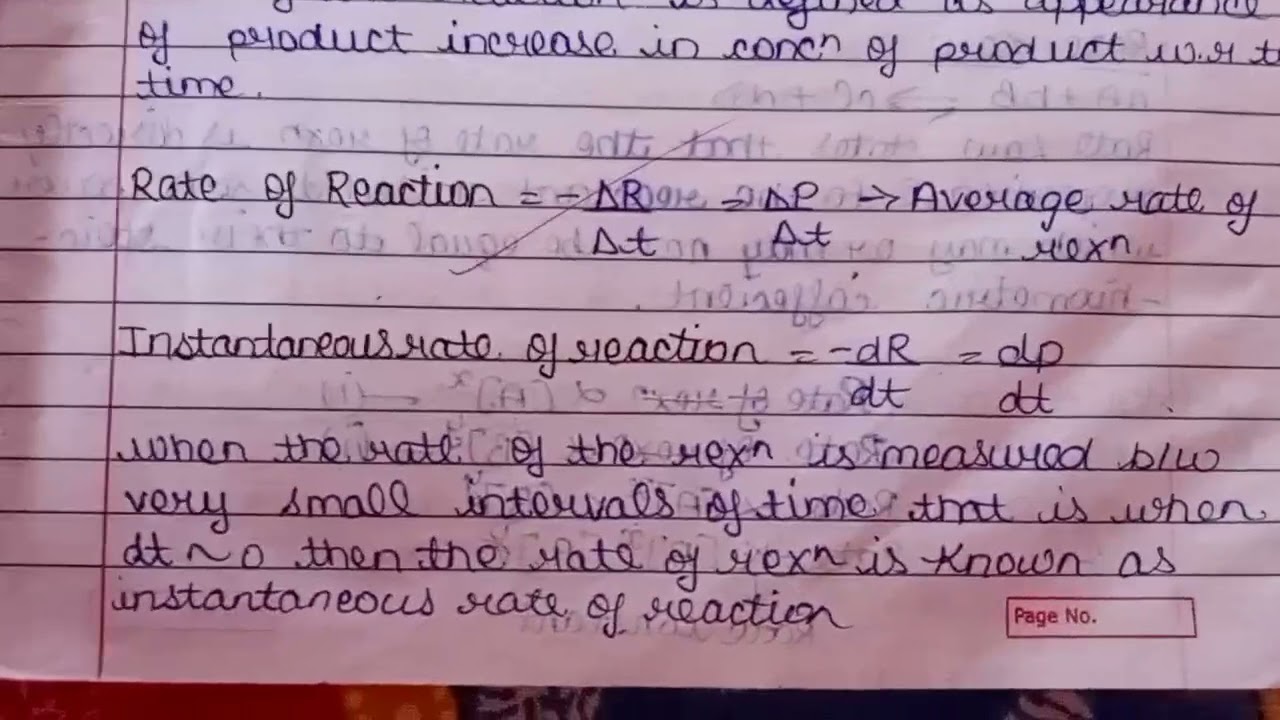 is defined as appearance
of product increase in concn of product w.r.t
time.
Rate of Reaction = -ΔR = ΔP → Average rate of
Δt Δt rexn
Instantaneous rate of reaction = -dR = dp
dt dt
when the rate of the rexn is measured b/w
very small intervals of time that is when
dt ~ 0 then the rate of rexn is known as
instantaneous rate of reaction
Page No.